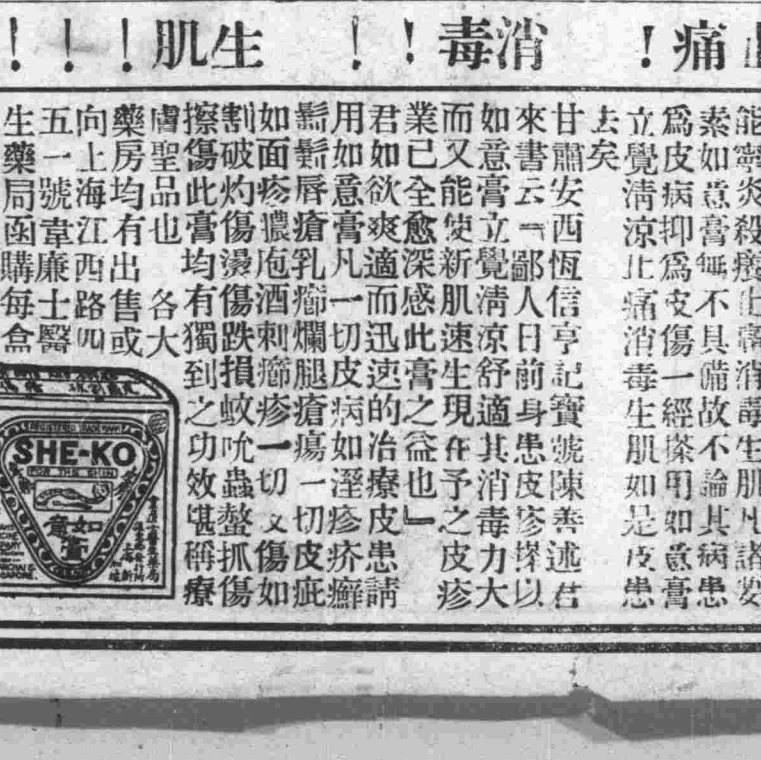 止痛！
消毒！！
生肌！！！！
能寧炎殺癢止痛消毒生肌凡諸安
素如意膏無不具備故不論其病患
爲皮病抑爲皮傷一經搽用如意膏
立覺淸涼止痛消毒生肌如是皮患
去矣
甘肅安西恆信亨記寶號陳善述君
來書云『鄙人日前身患皮疹搽以
如意膏立覺淸涼舒適其消毒力大
而又能使新肌速生現在予之皮疹
業已全愈深感此膏之益也』
君如欲爽適而迅速的治療皮患請
用如意膏凡一切皮病如溼疹疥癬
鬍鬁唇瘡乳癤爛腿瘡瘍一切皮疵
如面疹膿庖酒刺癤疹一切皮傷如
割破灼傷燙傷跌損蚊吮蟲螫抓傷
擦傷此膏均有獨到之功效堪稱療
膚聖品也　各大
藥房均有出售或
向上海江西路四
五一號韋廉士醫
生藥局函購每盒
REGISTERED TRADE MARK
SHE-KO
FOR THE SKIN
如意膏